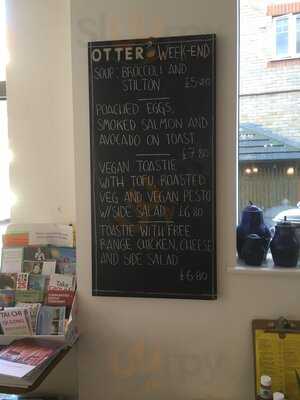 OTTER WEEK-END
SOUP: BROCCOLI AND
STILTON £5.20
POACHED EGGS,
SMOKED SALMON AND
AVOCADO ON TOAST
£7.80
VEGAN TOASTIE
WITH TOFU, ROASTED
VEG AND VEGAN PESTO
W/SIDE SALAD £6.80
TOASTIE WITH FREE
RANGE CHICKEN, CHEESE
AND SIDE SALAD
£6.80
TAI CHI